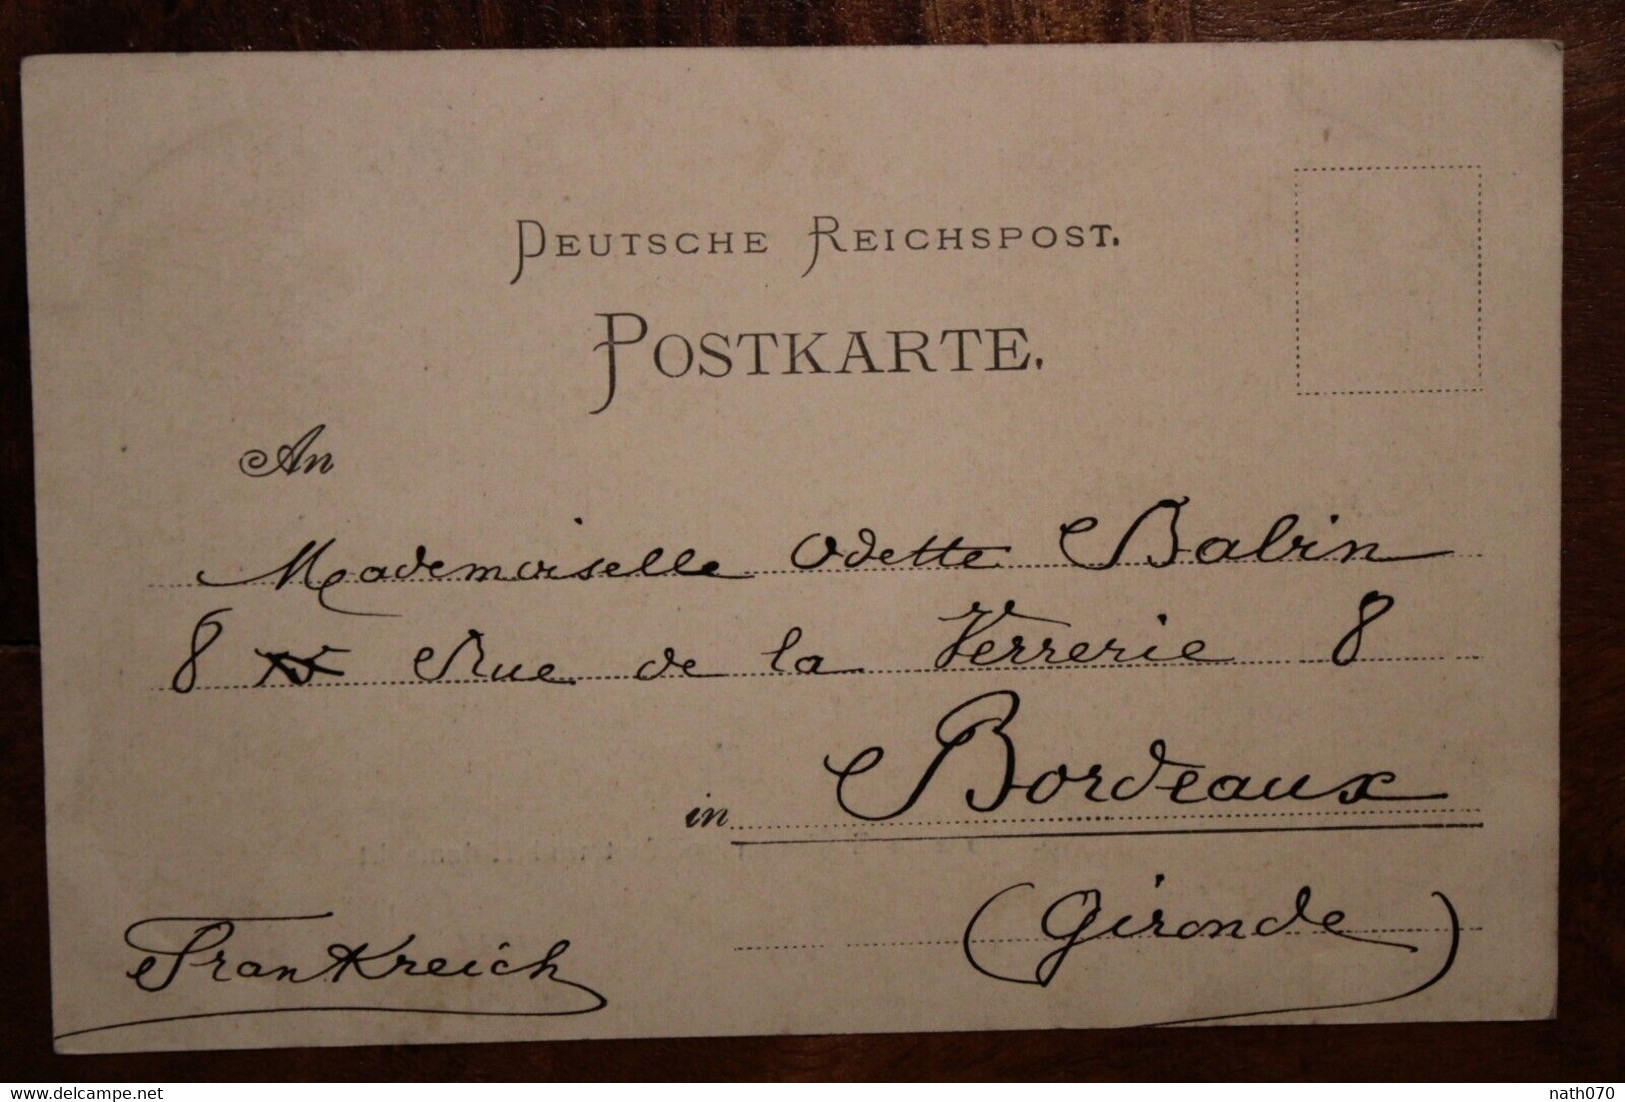 DEUTSCHE REICHSPOST.
POSTKARTE.
An
Mademoiselle Odette Babin
8 Rue de la Verrerie 8
in Bordeaux
(Gironde)
Frankreich
delcampe.net
nath070